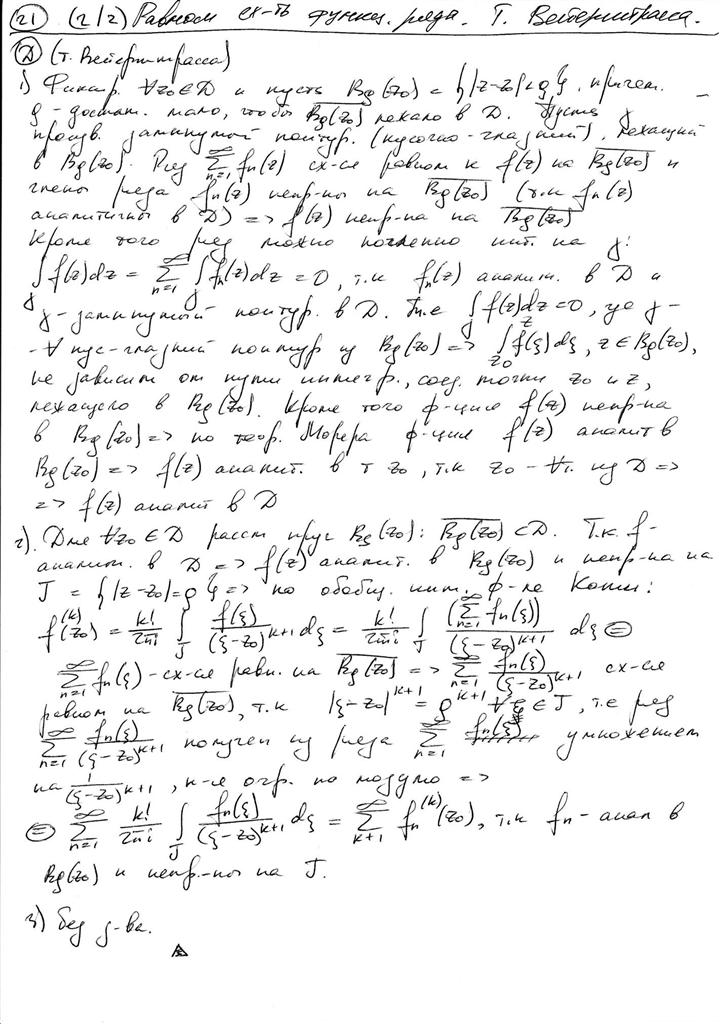 21 (2/2) Равном сх-ть функц. ряда. Т. Вейерштрасса.
Д (т. Вейерштрасса)
1) Фикир. ∀z₀∈D и пусть B_ρ(z₀) = {|z-z₀|<ρ}, причем.
ρ - достат. мало, чтобы \overline{B_ρ(z₀)} лежало в D. Пусть γ
произв. замкнутый контур. (кусочно-гладкий), лежащий
в B_ρ(z₀). Ряд \sum_{n=1}^{∞} f_n(z) сх-ся равном к f(z) на \overline{B_ρ(z₀)} и
члены ряда f_n(z) непр-ны на \overline{B_ρ(z₀)} (т.к f_n(z)
аналитичны в D) => f(z) непр-на на \overline{B_ρ(z₀)}
Кроме того ряд можно почленно инт. на γ:
∫_γ f(z)dz = \sum_{n=1}^{∞} ∫_γ f_n(z)dz = 0, т.к f_n(z) аналит. в D и
γ - замкнутый контур. в D. Т.е ∫_γ f(z)dz = 0, где γ -
- ∀ кус-гладкий контур из B_ρ(z₀) => ∫_{z₀}^{z} f(ξ)dξ, z∈B_ρ(z₀),
не зависит от пути интегр., соед. точки z₀ и z,
лежащего в B_ρ(z₀). Кроме того ф-ция f(z) непр-на
в B_ρ(z₀) => по теор. Морера ф-ция f(z) аналит в
B_ρ(z₀) => f(z) аналит. в т z₀, т.к z₀ - ∀т. из D =>
=> f(z) аналит в D
2). Для ∀z₀∈D расст круг B_ρ(z₀): \overline{B_ρ(z₀)} ⊂ D. Т.к. f -
аналит. в D => f(z) аналит. в B_ρ(z₀) и непр-на на
J = {|z-z₀|=ρ} => по обобщ. инт. ф-ле Коши:
f^{(k)}(z₀) = \frac{k!}{2πi} ∫_J \frac{f(ξ)}{(ξ-z₀)^{k+1}} dξ = \frac{k!}{2πi} ∫_J \frac{(\sum_{n=1}^{∞} f_n(ξ))}{(ξ-z₀)^{k+1}} dξ ⊜
\sum_{n=1}^{∞} f_n(ξ) - сх-ся равн. на \overline{B_ρ(z₀)} => \sum_{n=1}^{∞} \frac{f_n(ξ)}{(ξ-z₀)^{k+1}} сх-ся
равном на \overline{B_ρ(z₀)}, т.к |ξ-z₀|^{k+1} = ρ^{k+1} ∀ξ∈J, т.е ряд
\sum_{n=1}^{∞} \frac{f_n(ξ)}{(ξ-z₀)^{k+1}} получен из ряда \sum_{n=1}^{∞} f_n(ξ) умножением
на \frac{1}{(ξ-z₀)^{k+1}}, к-е огр. по модулю =>
⊜ \sum_{n=1}^{∞} \frac{k!}{2πi} ∫_J \frac{f_n(ξ)}{(ξ-z₀)^{k+1}} dξ = \sum_{k+1}^{∞} f_n^{(k)}(z₀), т.к f_n - анал в
B_ρ(z₀) и непр-ны на J.
3) без д-ва.